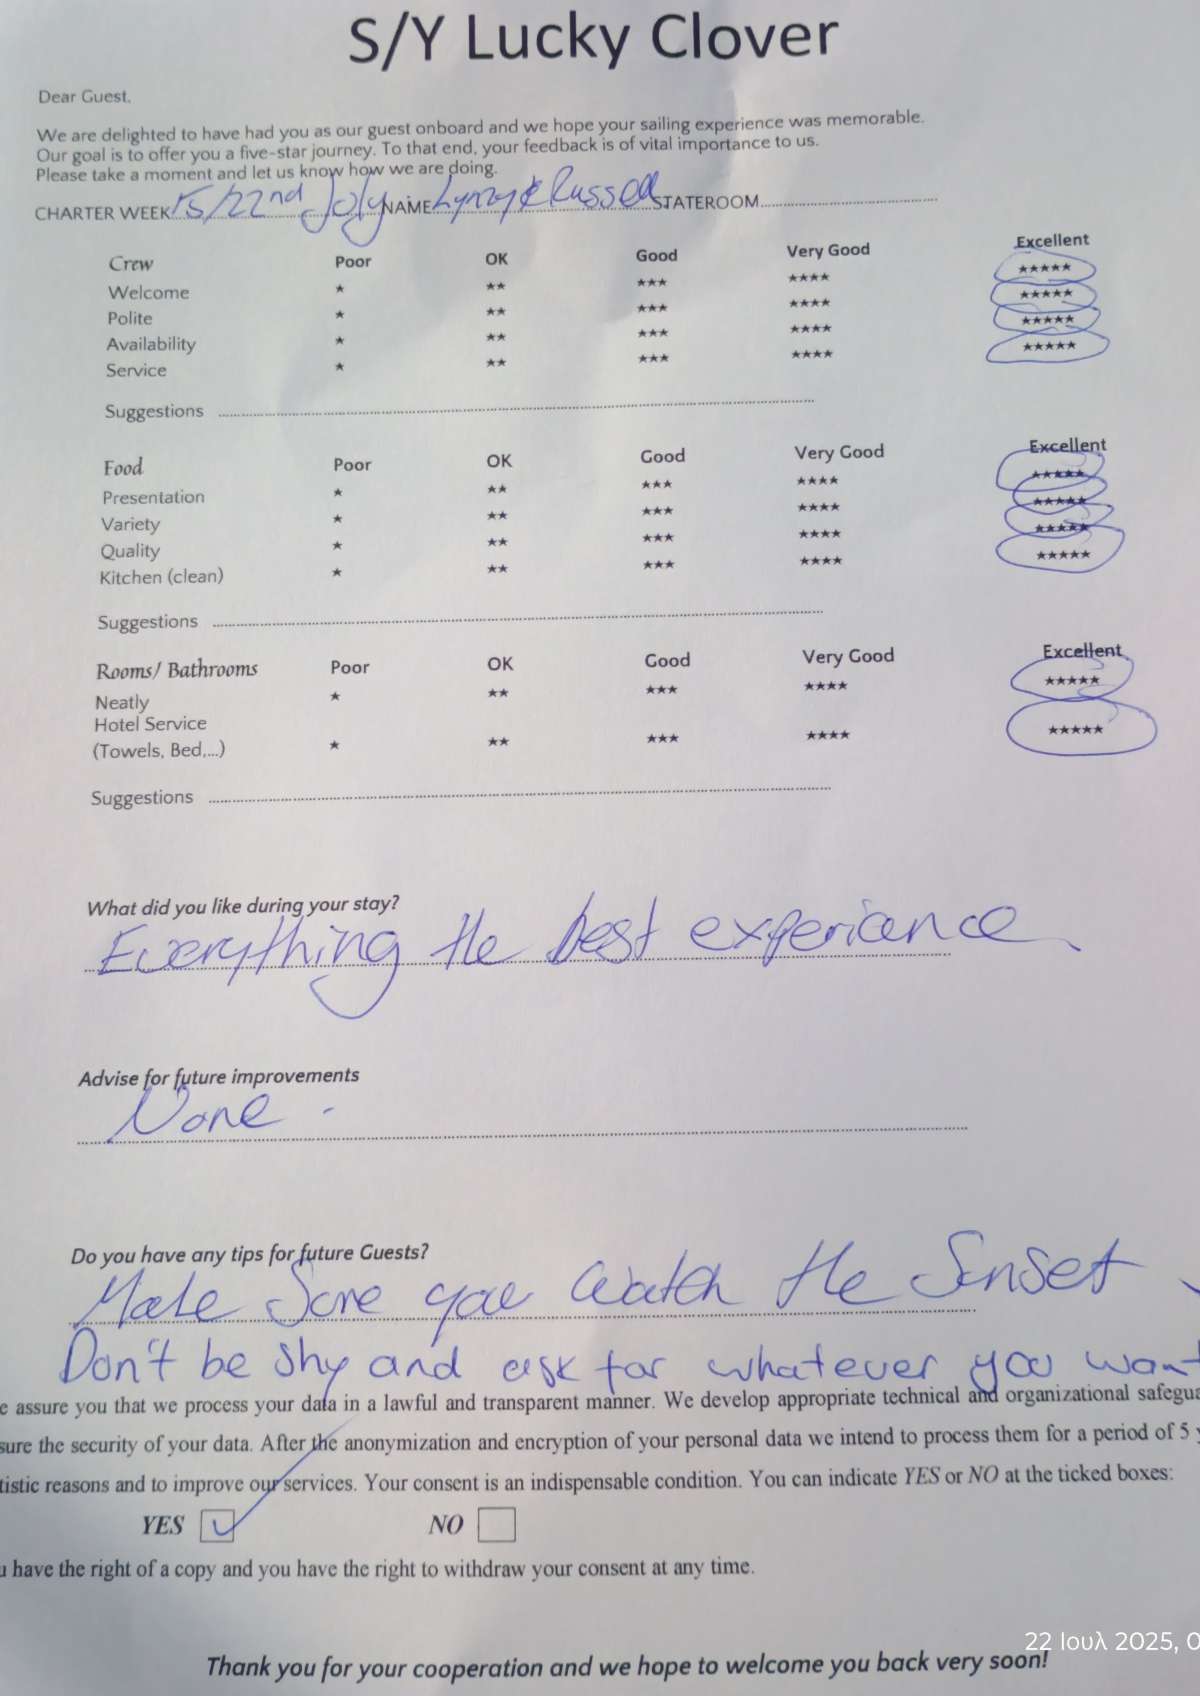 S/Y Lucky Clover
Dear Guest,
We are delighted to have had you as our guest onboard and we hope your sailing experience was memorable.
Our goal is to offer you a five-star journey. To that end, your feedback is of vital importance to us.
Please take a moment and let us know how we are doing.
CHARTER WEEK 15/22nd July NAME Lynzy & Russell STATEROOM
Crew Poor OK Good Very Good Excellent
Welcome ★ ★★ ★★★ ★★★★ ★★★★★
Polite ★ ★★ ★★★ ★★★★ ★★★★★
Availability ★ ★★ ★★★ ★★★★ ★★★★★
Service ★ ★★ ★★★ ★★★★ ★★★★★
Suggestions
Food Poor OK Good Very Good Excellent
Presentation ★ ★★ ★★★ ★★★★ ★★★★★
Variety ★ ★★ ★★★ ★★★★ ★★★★★
Quality ★ ★★ ★★★ ★★★★ ★★★★★
Kitchen (clean) ★ ★★ ★★★ ★★★★ ★★★★★
Suggestions
Rooms/ Bathrooms Poor OK Good Very Good Excellent
Neatly ★ ★★ ★★★ ★★★★ ★★★★★
Hotel Service
(Towels, Bed,...) ★ ★★ ★★★ ★★★★ ★★★★★
Suggestions
What did you like during your stay?
Everything the best experience
Advise for future improvements
None .
Do you have any tips for future Guests?
Make Sure you watch the Sunset
Don't be shy and ask for whatever you want
e assure you that we process your data in a lawful and transparent manner. We develop appropriate technical and organizational safegua
sure the security of your data. After the anonymization and encryption of your personal data we intend to process them for a period of 5
tistic reasons and to improve our services. Your consent is an indispensable condition. You can indicate YES or NO at the ticked boxes:
YES NO
u have the right of a copy and you have the right to withdraw your consent at any time.
22 Ιουλ 2025, 0
Thank you for your cooperation and we hope to welcome you back very soon!